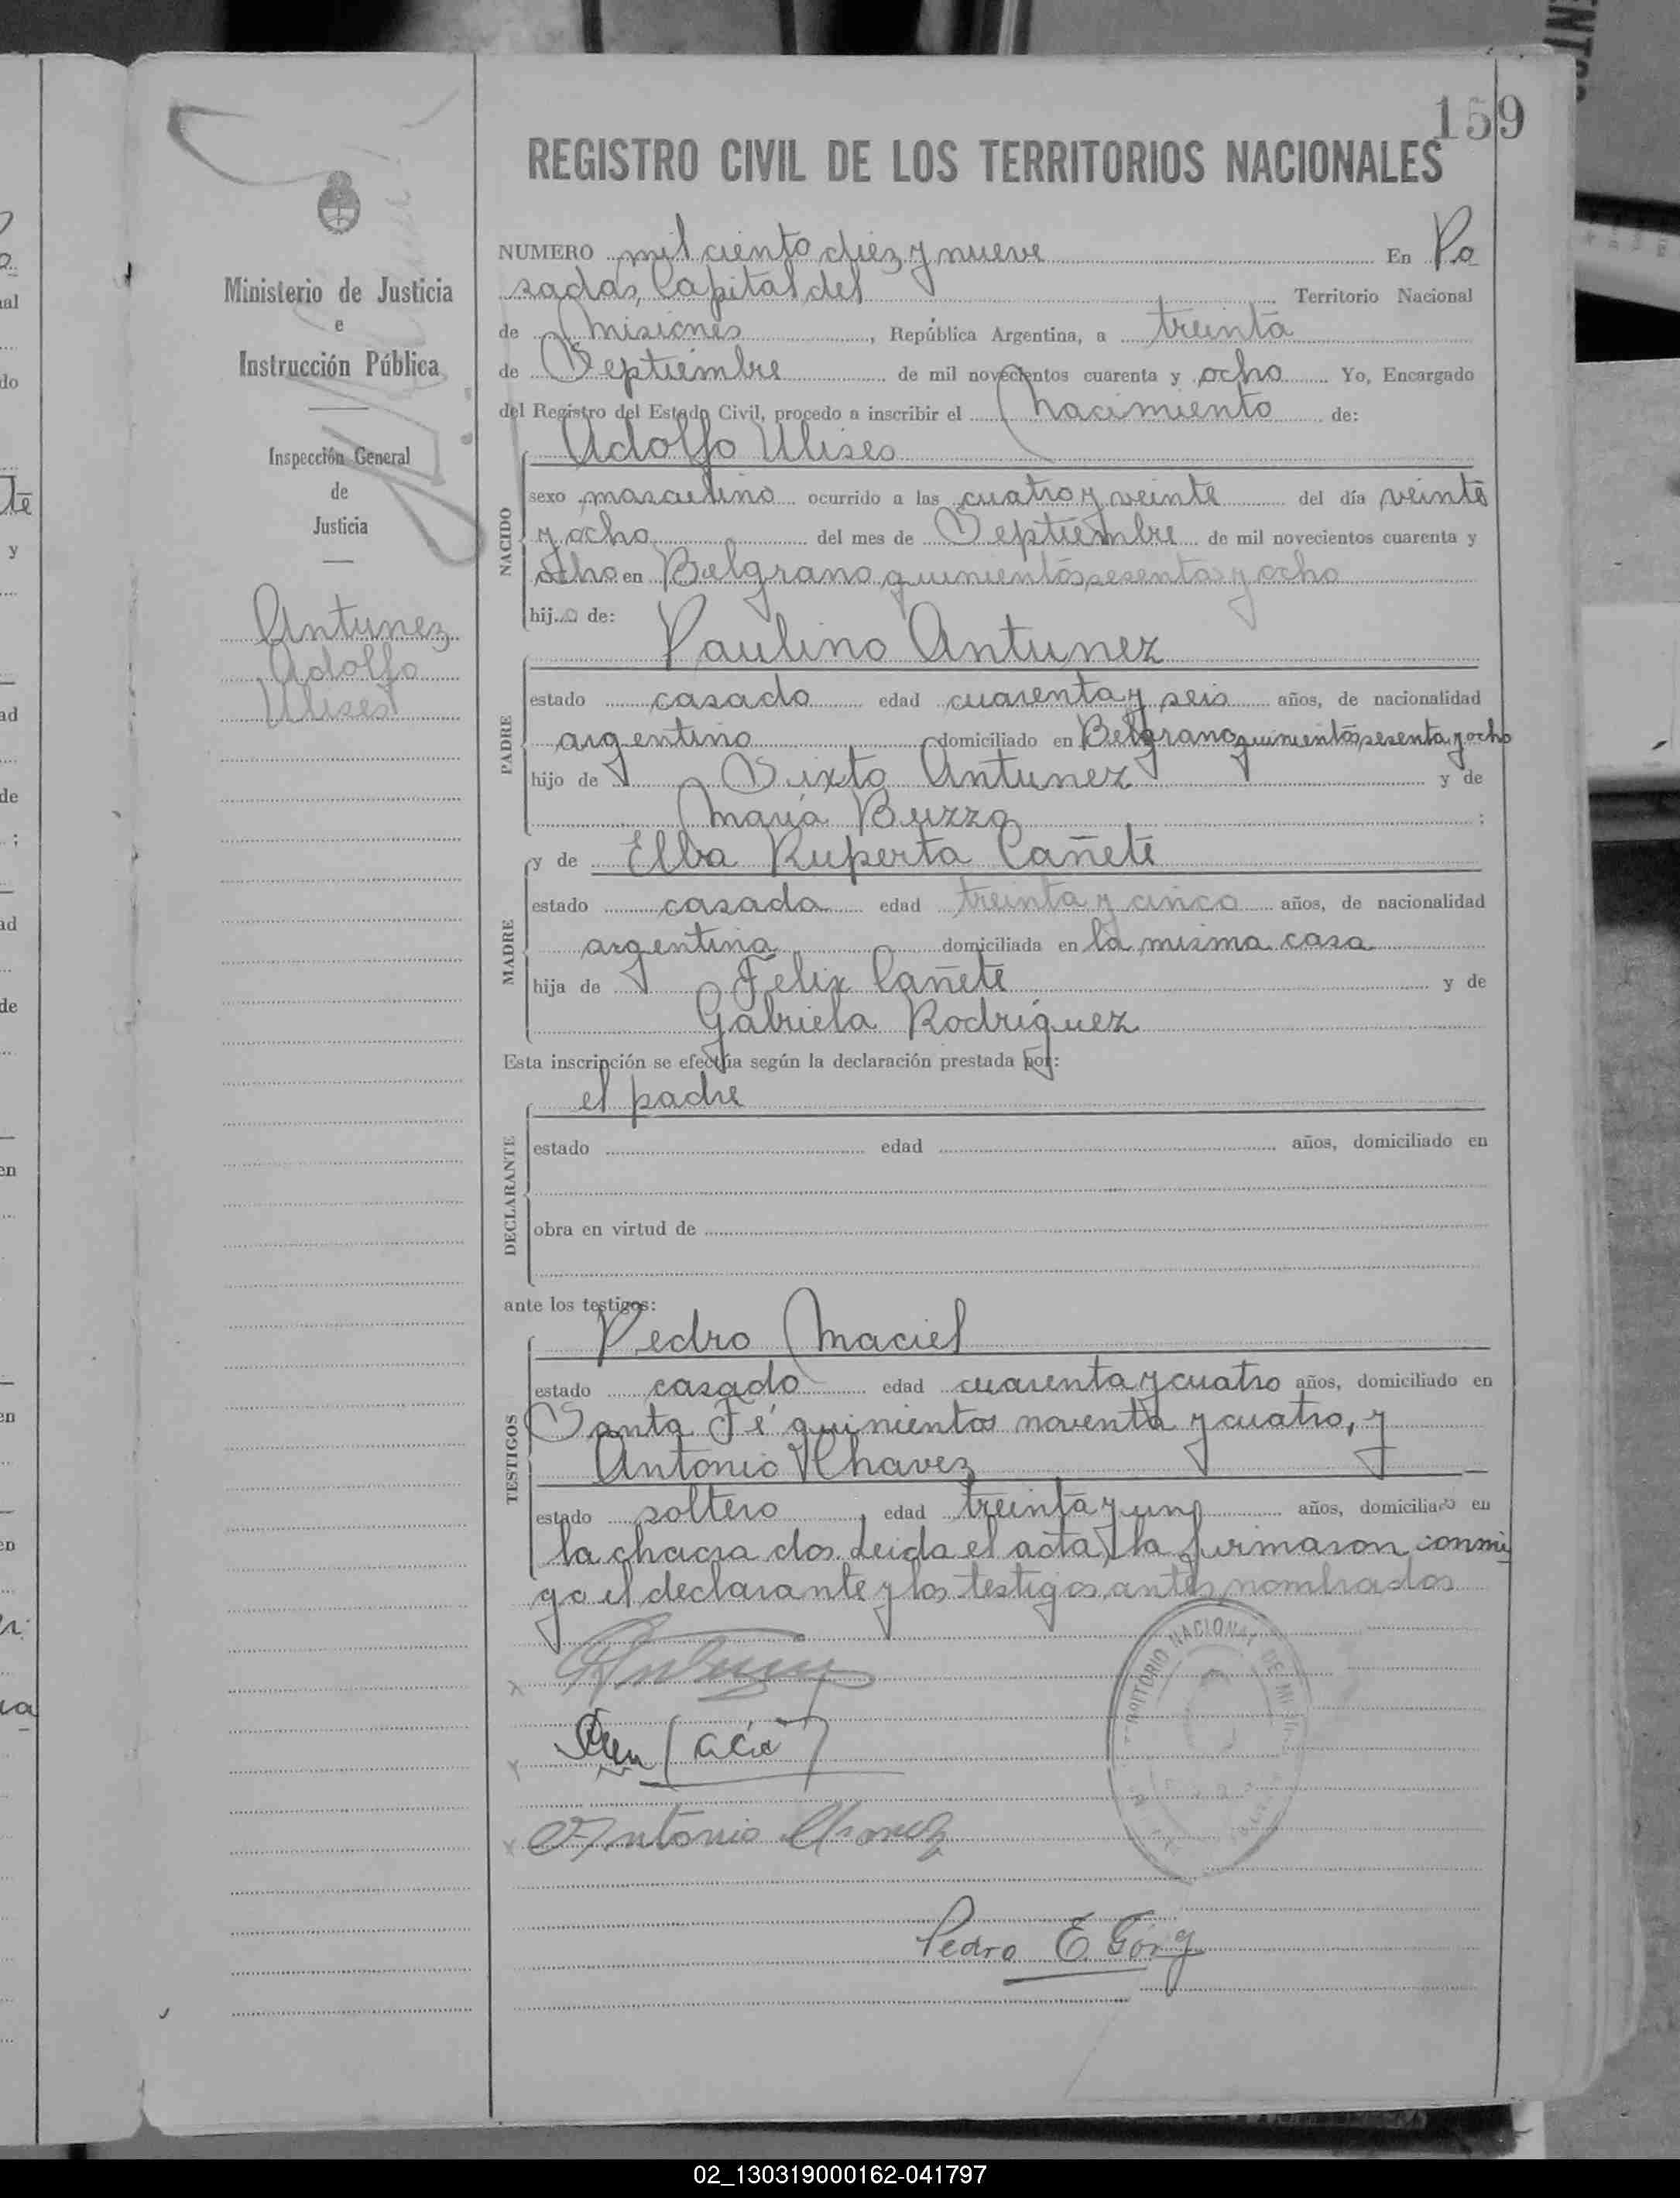 159
REGISTRO CIVIL DE LOS TERRITORIOS NACIONALES
Ministerio de Justicia
e
Instrucción Pública
Inspección General
de
Justicia
Antunez
Adolfo
Ulises
NUMERO mil ciento diez y nueve En Po
sadas, Capital del Territorio Nacional
de Misiones, República Argentina, a treinta
de Septiembre de mil novecientos cuarenta y ocho Yo, Encargado
del Registro del Estado Civil, procedo a inscribir el Nacimiento de:
Adolfo Ulises
NACIDO
sexo masculino ocurrido a las cuatro y veinte del día veinte
y ocho del mes de Septiembre de mil novecientos cuarenta y
ocho en Belgrano quinientos sesenta y ocho
hijo de:
Paulino Antunez
PADRE
estado casado edad cuarenta y seis años, de nacionalidad
argentino domiciliado en Belgrano quinientos sesenta y ocho
hijo de Sixto Antunez y de
María Buzzo ;
y de Elba Ruperta Cañete
MADRE
estado casada edad treinta y cinco años, de nacionalidad
argentina domiciliada en la misma casa
hija de Felix Cañete y de
Gabriela Rodríguez
Esta inscripción se efectúa según la declaración prestada por:
el padre
DECLARANTE
estado edad años, domiciliado en
obra en virtud de
ante los testigos:
Pedro Maciel
TESTIGOS
estado casado edad cuarenta y cuatro años, domiciliado en
Santa Fé quinientos noventa y cuatro, y
Antonio Chavez
estado soltero edad treinta y uno años, domiciliado en
la chacra dos. Leida el acta, la firmaron conmi
go el declarante y los testigos antes nombrados
Antonio Chavez
TERRITORIO NACIONAL DE MISIONES
Pedro E
02_130319000162-041797